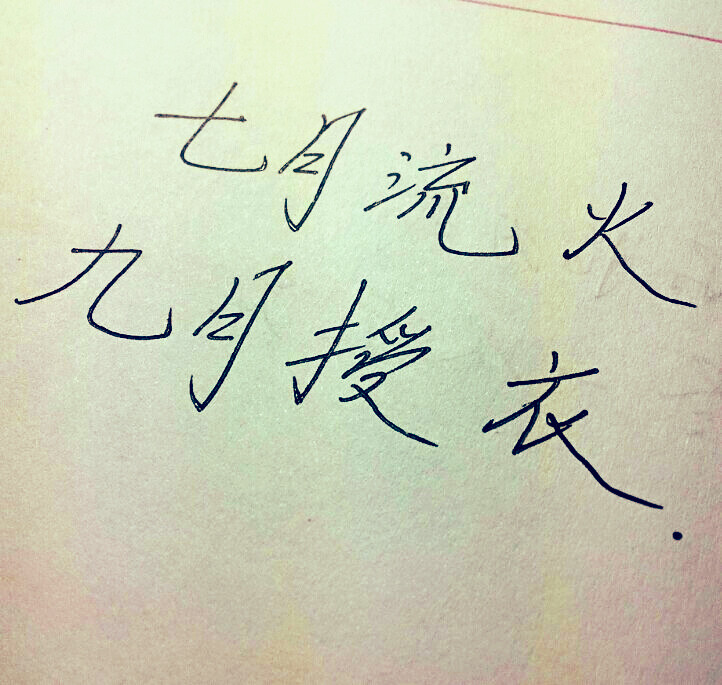 七月流火
九月授衣.